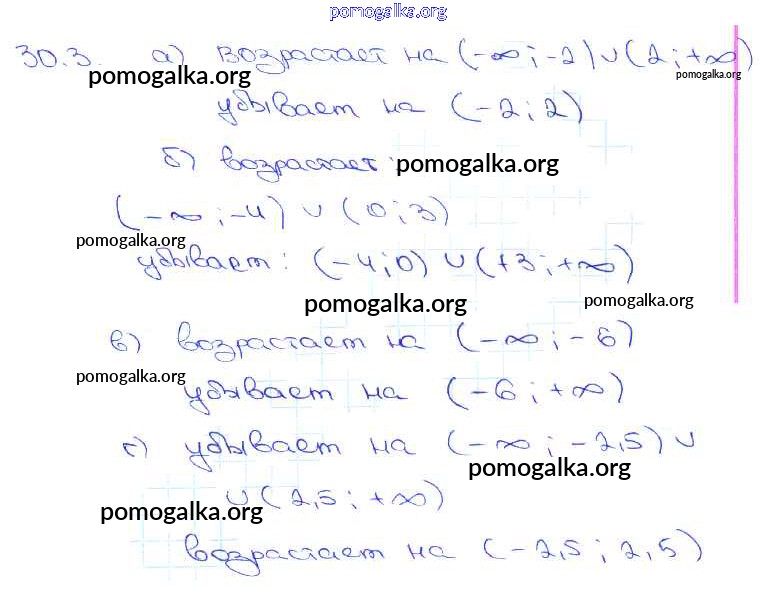 pomogalka.org
30.3. а) возрастает на (-∞; -2) ∪ (2; +∞)
pomogalka.org pomogalka.org
убывает на (-2; 2)
б) возрастает: pomogalka.org
(-∞; -4) ∪ (0; 3)
pomogalka.org
убывает: (-4; 0) ∪ (+3; +∞)
pomogalka.org pomogalka.org
в) возрастает на (-∞; -6)
pomogalka.org
убывает на (-6; +∞)
г) убывает на (-∞; -2,5) ∪
pomogalka.org
∪ (2,5; +∞)
pomogalka.org
возрастает на (-2,5; 2,5)